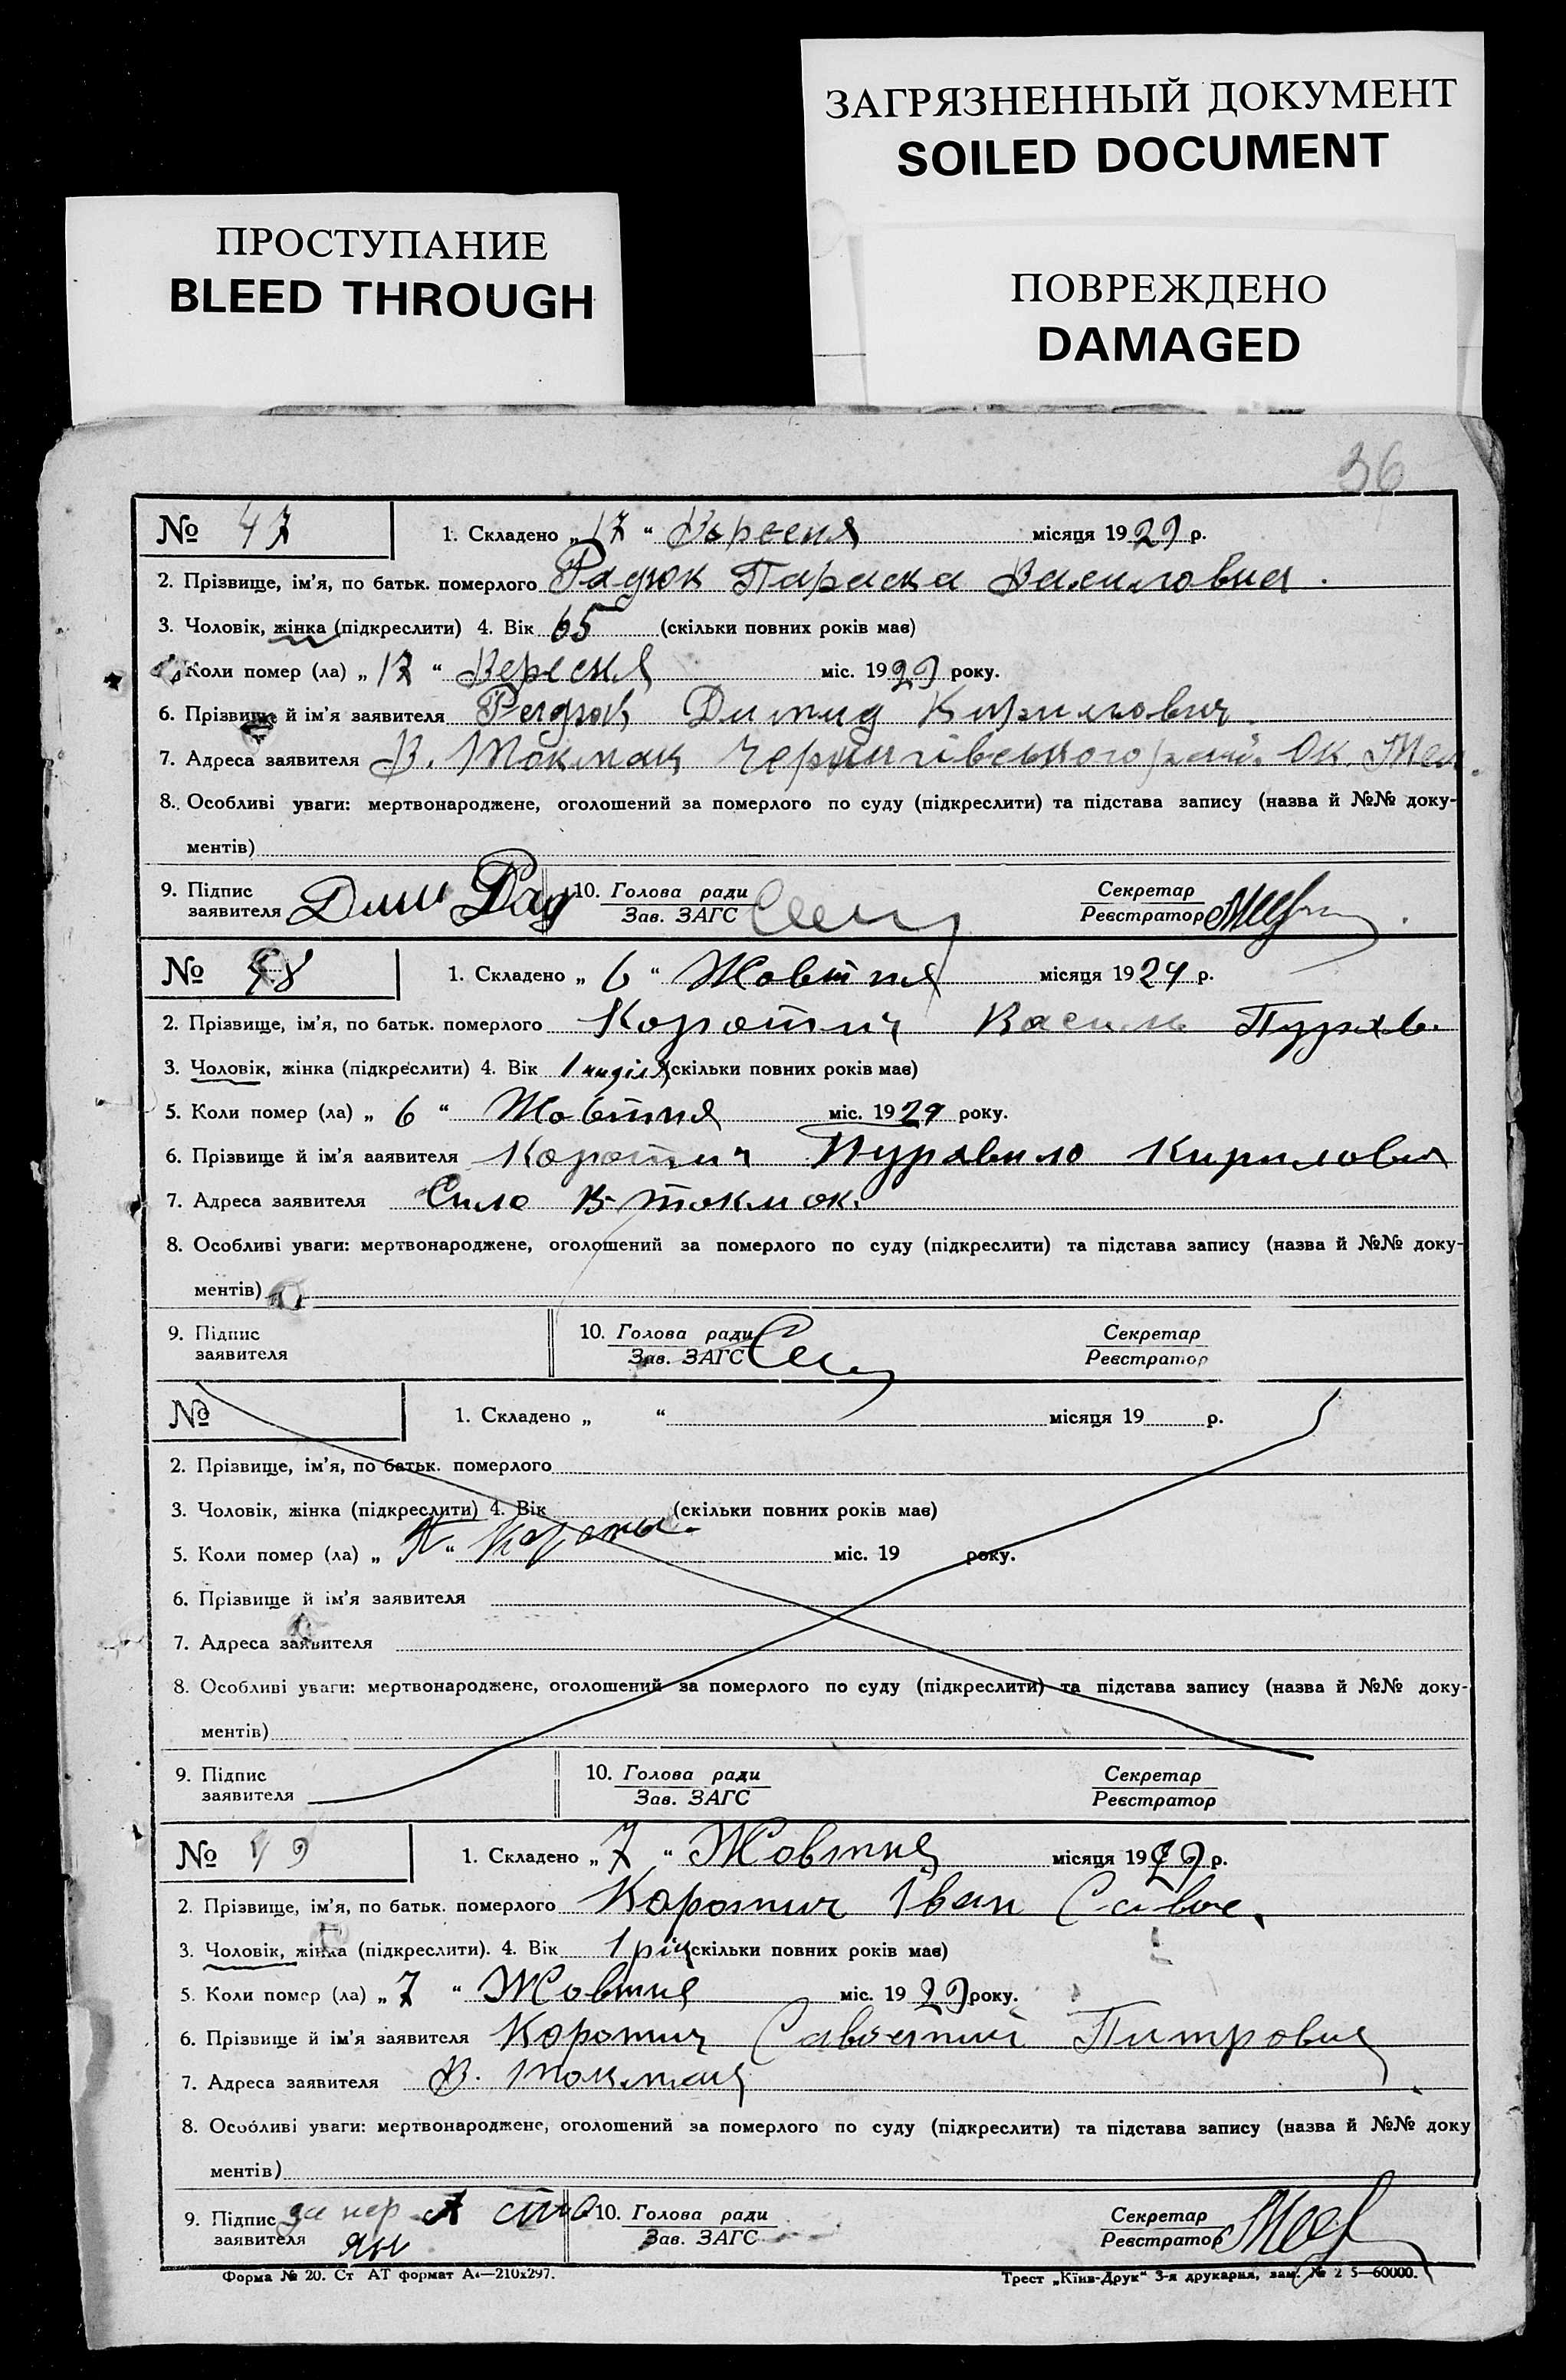 ЗАГРЯЗНЕННЫЙ ДОКУМЕНТ
SOILED DOCUMENT
ПРОСТУПАНИЕ
BLEED THROUGH
ПОВРЕЖДЕНО
DAMAGED
36
№ 47 1. Складено „ 17 “ Вересня місяця 1929 р.
2. Прізвище, ім’я, по батьк. померлого Радюк Параска Василовна.
3. Чоловік, жінка (підкреслити) 4. Вік 65 (скільки повних років має)
Коли помер (ла) „ 17 “ Вересня міс. 1929 року.
6. Прізвище й ім’я заявителя Радюк Димид Кирилович
7. Адреса заявителя В. Токмак Чернигівського Ок. Мел.
8. Особливі уваги: мертвонароджене, оголошений за померлого по суду (підкреслити) та підстава запису (назва й №№ доку-
ментів)
9. Підпис заявителя Рад 10. Голова ради Зав. ЗАГС Секретар Реєстратор
№ 48 1. Складено „ 6 “ Жовтня місяця 1929 р.
2. Прізвище, ім’я, по батьк. померлого Коротич Василь
3. Чоловік, жінка (підкреслити) 4. Вік 1 (скільки повних років має)
5. Коли помер (ла) „ 6 “ Жовтня міс. 1929 року.
6. Прізвище й ім’я заявителя Коротич Кирилович
7. Адреса заявителя Село В-Токмак.
8. Особливі уваги: мертвонароджене, оголошений за померлого по суду (підкреслити) та підстава запису (назва й №№ доку-
ментів)
9. Підпис заявителя 10. Голова ради Зав. ЗАГС Секретар Реєстратор
№ 1. Складено „ “ місяця 19 р.
2. Прізвище, ім’я, по батьк. померлого
3. Чоловік, жінка (підкреслити) 4. Вік (скільки повних років має)
5. Коли помер (ла) „ “ міс. 19 року.
6. Прізвище й ім’я заявителя
7. Адреса заявителя
8. Особливі уваги: мертвонароджене, оголошений за померлого по суду (підкреслити) та підстава запису (назва й №№ доку-
ментів)
9. Підпис заявителя 10. Голова ради Зав. ЗАГС Секретар Реєстратор
№ 49 1. Складено „ 7 “ Жовтня місяця 1929 р.
2. Прізвище, ім’я, по батьк. померлого Коротич Іван Савве.
3. Чоловік, жінка (підкреслити). 4. Вік 1 рік (скільки повних років має)
5. Коли помер (ла) „ 7 “ Жовтня міс. 1929 року.
6. Прізвище й ім’я заявителя Коротич Петрович
7. Адреса заявителя В. Токмак
8. Особливі уваги: мертвонароджене, оголошений за померлого по суду (підкреслити) та підстава запису (назва й №№ доку
ментів)
9. Підпис заявителя 10. Голова ради Зав. ЗАГС Секретар Реєстратор
Форма № 20. Ст АТ формат А4—210х297. Трест „Київ-Друк“ 3-я друкарня, зам. № 2 5—60000.